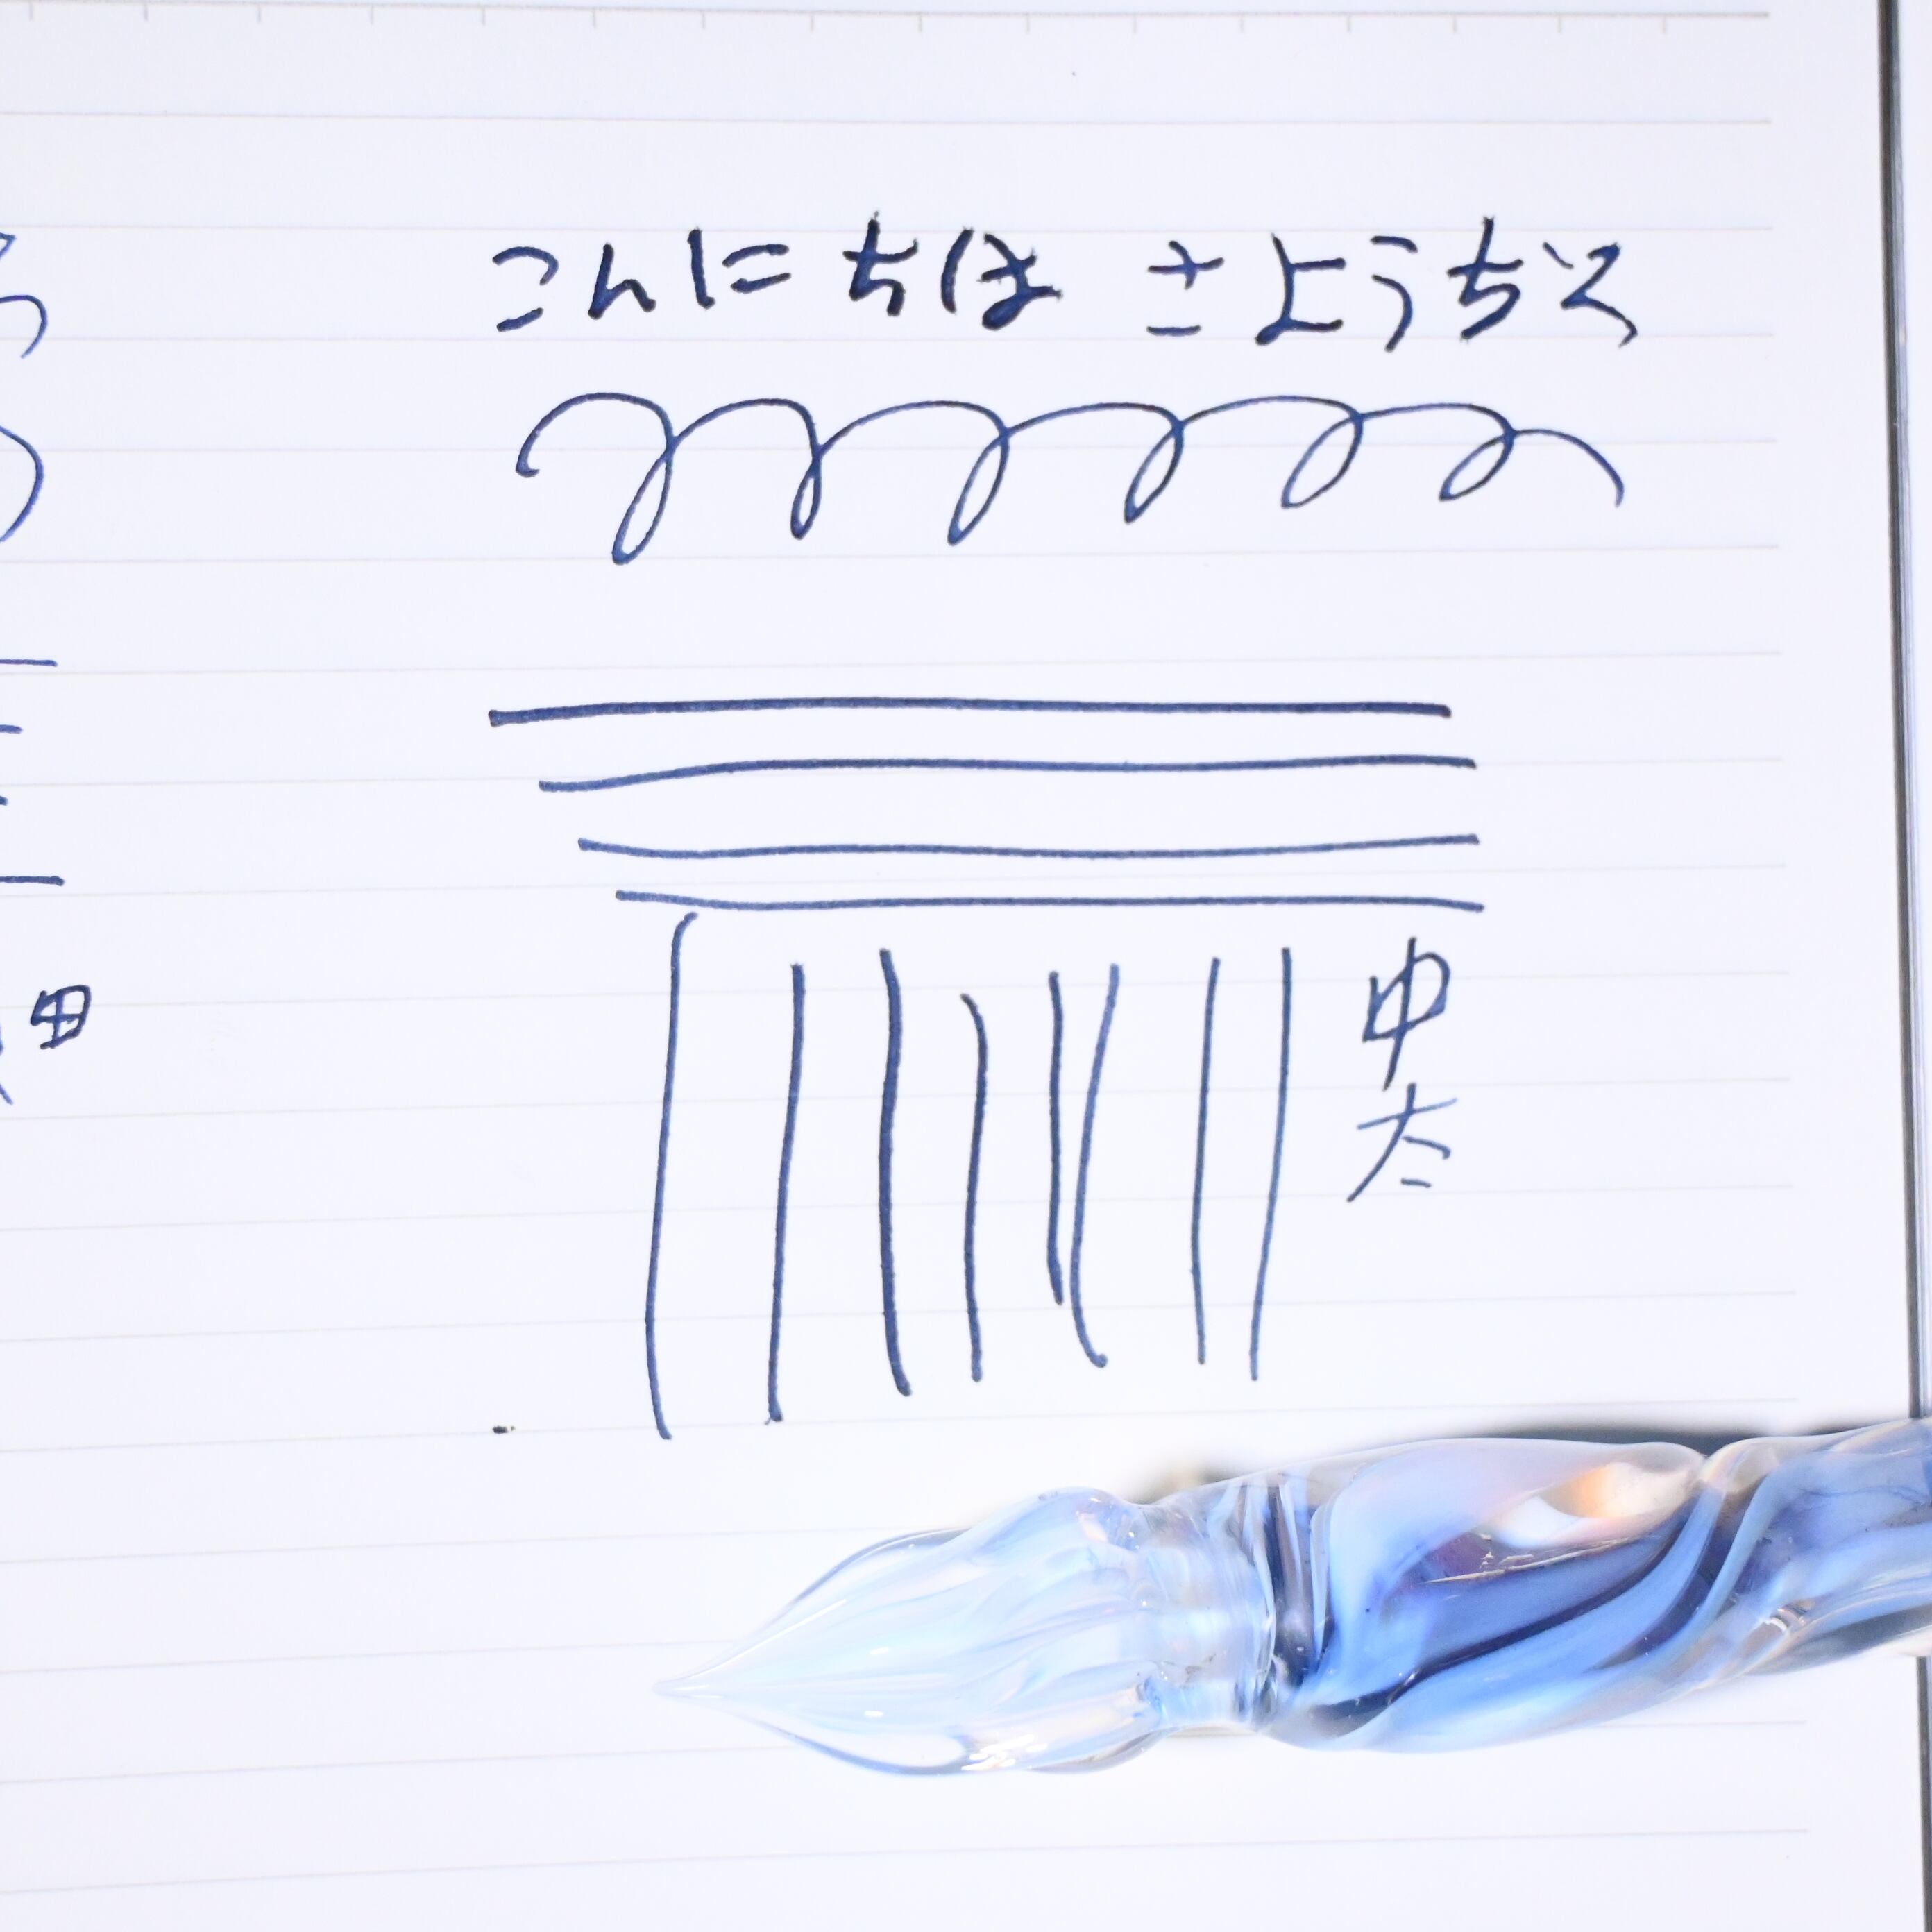 こんにちは さようなら
中太